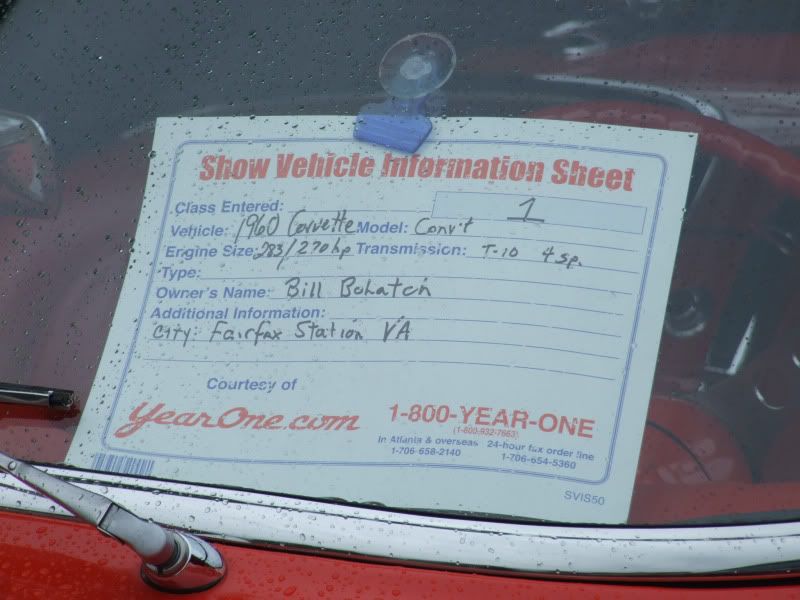 Show Vehicle Information Sheet
Class Entered: 1
Vehicle: 1960 Corvette Model: Conv't
Engine Size: 283/270hp Transmission: T-10 4 sp.
Type:
Owner's Name: Bill Bohatch
Additional Information:
City: Fairfax Station VA
Courtesy of
YearOne.com 1-800-YEAR-ONE
(1-800-932-7663)
In Atlanta & overseas 24-hour fax order line
1-706-658-2140 1-706-654-5360
SVIS50